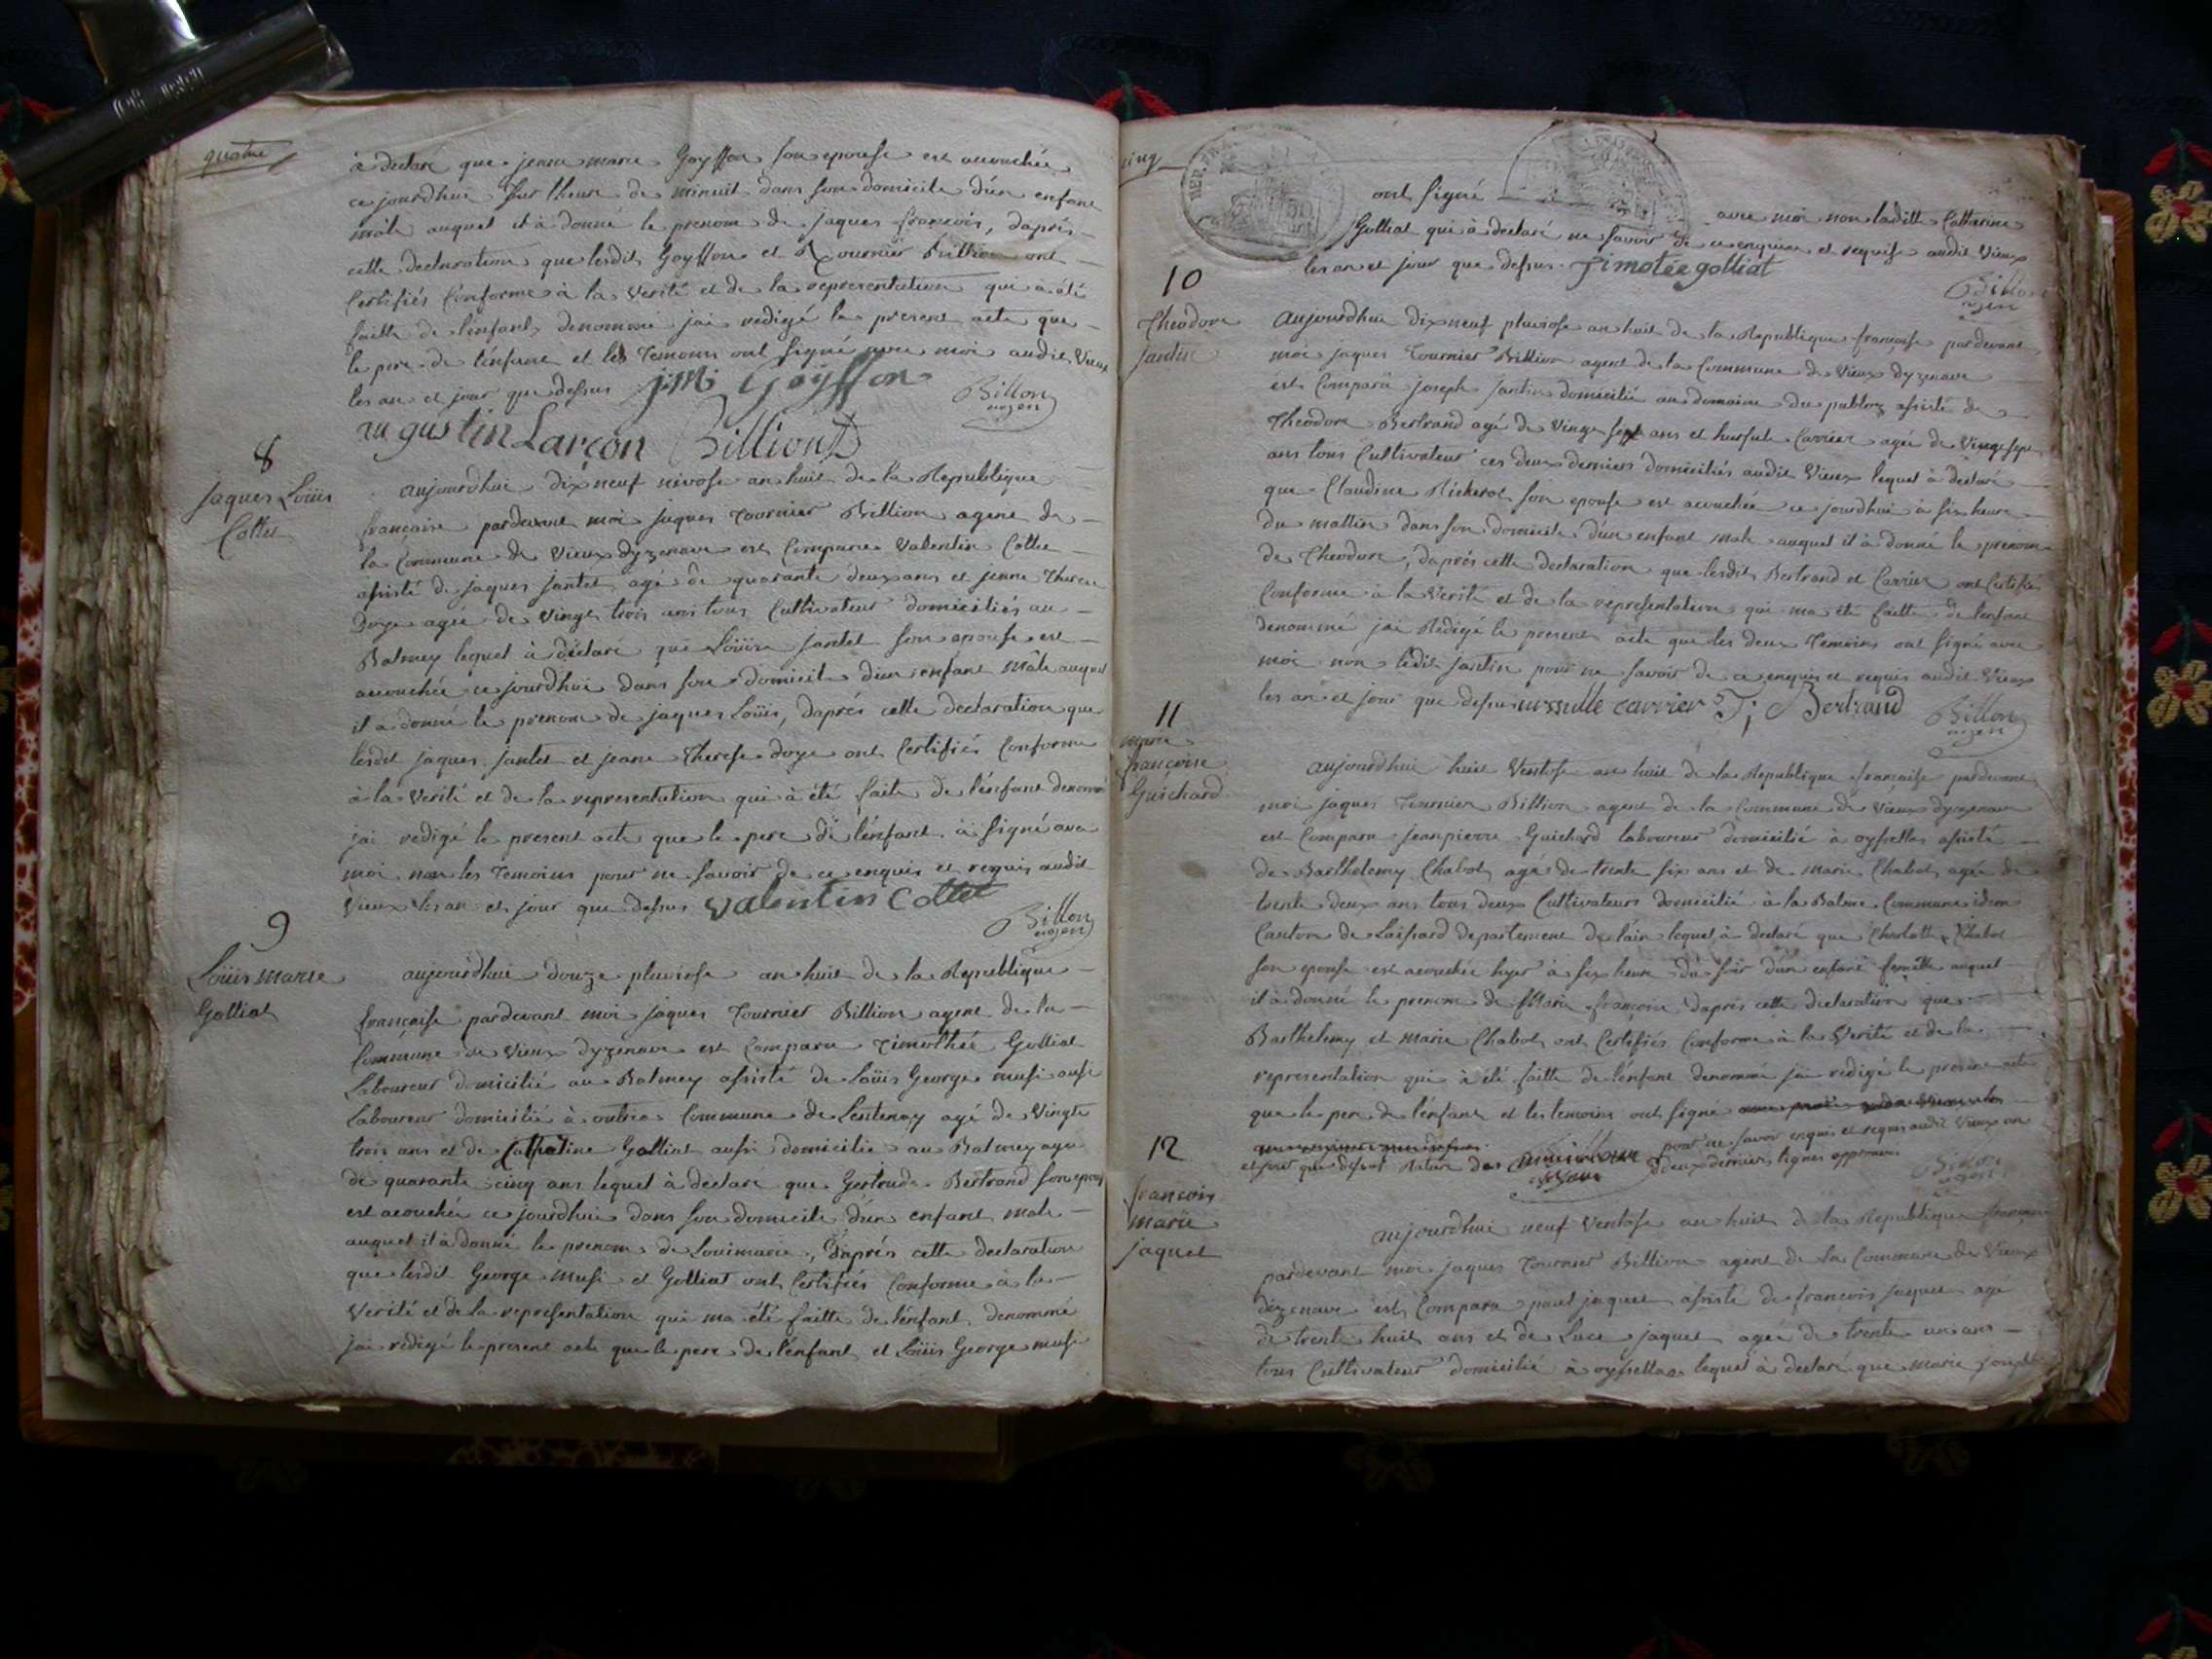 quatre
à declaré que jeane marie Goyffon son epouse est acouchée
ce jourdhui sur lheure de minuit dans son domicile d'un enfant
mâle auquel il à donné le prenom de jaques françois, daprés
cette declaration que lesdits Goyffon et Tournier Billion ont
Certifiés Conforme à la verité et de la representation qui a été
faitte de l'enfant denommé jai redigé le present acte que
le pere de l'enfant et les Temoins ont signé avec moi audit Vieux
les an et jour que dessus j:m: Goÿffon
Billon
agen
augustin Larçon Billiont
8
jaques Loüis
Collet
aujourdhui dix neuf nivose an huit de la Republique
française pardevant moi jaques Tournier Billion agent de
la Commune de Vieux dyzenave est Comparu Valentin Collet
assisté de jaques jantet agé de quarante deux ans et jeane Therese
Doye agée de vingt trois ans tous Cultivateur domiciliés au
Balmey lequel à déclaré que Loüise jantet son epouse est
acouchée ce jourdhui dans son domicile d'un enfant mâle auquel
il a donné le prenom de jaques Loüis, daprés cette declaration que
lesdit jaques jantet et jeane Therese Doye ont Certifiés Conforme
à la verité et de la representation qui à été faite de l'enfant denommé
jai redigé le present acte que le pere de l'enfant à signé avec
moi non les Temoins pour ne savoir de ce enquis et requis audit
Vieux les an et jour que dessus valentin Collet
Billon
agen
9
Loüis marie
Golliat
aujourdhui douze pluviose an huit de la Republique
française pardevant moi jaques Tournier Billion agent de la
Commune de Vieux dyzenave est Comparu Timothée Golliat
Laboureur domicilié au Balmey assisté de Loüis George musi aussi
Laboureur domicilié à outria Commune de Lentenay agé de Vingt
trois ans et de Catharine Golliat aussi domicilie au Balmey agée
de quarante cinq ans lequel à déclaré que Gertrude Bertrand son epouse
est acouchée ce jourdhui dans son domicile d'un enfant male
auquel il à donné le prenom de Louimarie, daprés cette declaration
que lesdit George musi et Golliat ont Certifiés Conforme à la
Verité et de la representation qui ma été faitte de l'enfant denommé
jai redigé le present acte que le pere de l'enfant et Loüis George musi
cinq
REP. FRA
50
ont signé avec moi non laditte Cattarine
Golliat qui à declaré ne savoir de ce enquise et requise audit Vieux
les an et jour que dessus. Timotée golliat
Billon
agen
10
Theodore
jantin
Aujourdhui dix neuf pluviose an huit de la Republique française pardevant
moi jaques Tournier Billion agent de la Commune de Vieux dyzenave
est Comparu joseph jantin domicilié au domaine du assisté de
Theodore Bertrand agé de Vingt sept ans et hursule Carrier agée de Vingt sept
ans tous Cultivateur ces deux derniers domiciliés audit Vieux lequel à declaré
que Claudine son epouse est acouchée ce jourdhui à six heure
du mattin dans son domicile d'un enfant male auquel il à donné le prenom
de Theodore, daprés cette declaration que lesdits Bertrand et Carrier ont Certifiés
Conforme à la Verité et de la representation qui ma été faitte de l'enfant
denommé jai Redigé le present acte que les deux Temoins ont signé avec
moi non ledit jantin pour ne savoir de ce enquis et requis audit Vieux
les an et jour que dessus urssulle carrier T; Bertrand
Billon
agen
11
marie
françoise
Guichard
aujourdhui huit Ventose an huit de la Republique française pardevant
moi jaques Tournier Billion agent de la Commune de Vieux dyzenave
est Comparu jeanpierre Guichard laboureur domicilié à oysellas assisté
de Barthelemy Chabot agé de trente six ans et de marie Chabot agée de
trente deux ans tous deux Cultivateurs domicilié à la Balme Commune idem
Canton de departement de lain lequel à declaré que Charlotte Chabot
son epouse est acouchée hyer à six heure du soir d'un enfant femelle auquel
il à donné le prenom de Marie françoise daprés cette declaration que
Barthelemy et marie Chabot ont Certifiés Conforme à la Verité et de la
representation qui à été faitte de l'enfant denommé jai redigé le present acte
que le pere de l'enfant et les temoins ont signé
pour ne savoir enquis et requis audit Vieux an
et jour que dessus deux dernier lignes approuve
Billon
agen
12
francois
marie
jaquet
aujourdhui neuf Ventose an huit de la Republique française
pardevant moi jaques Tournier Billion agent de la Commune de Vieux
dizenave est Comparu paul jaquet assisté de francois jaquet agé
de trente huit ans et de Luce jaquet agée de trente un ans
tous Cultivateur domicilié à oyssellas lequel à declaré que marie joseph